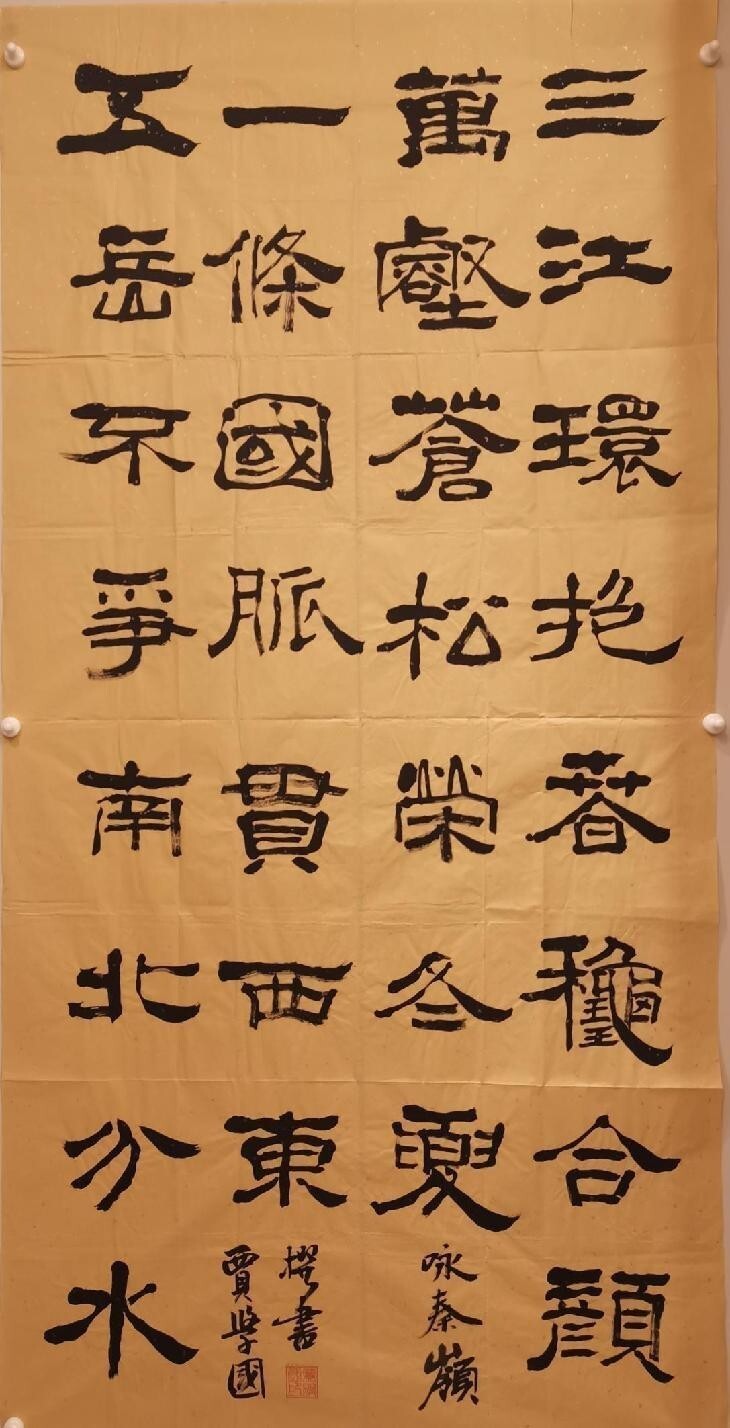 三江環抱春龝合顔
萬壑蒼松榮冬夏
咏秦嶺
五岳不爭南北分水
一條國脈貫西東
賈學國
撰書